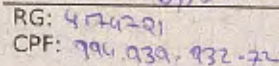 RG: 4574721
CPF: 994.939.932-72